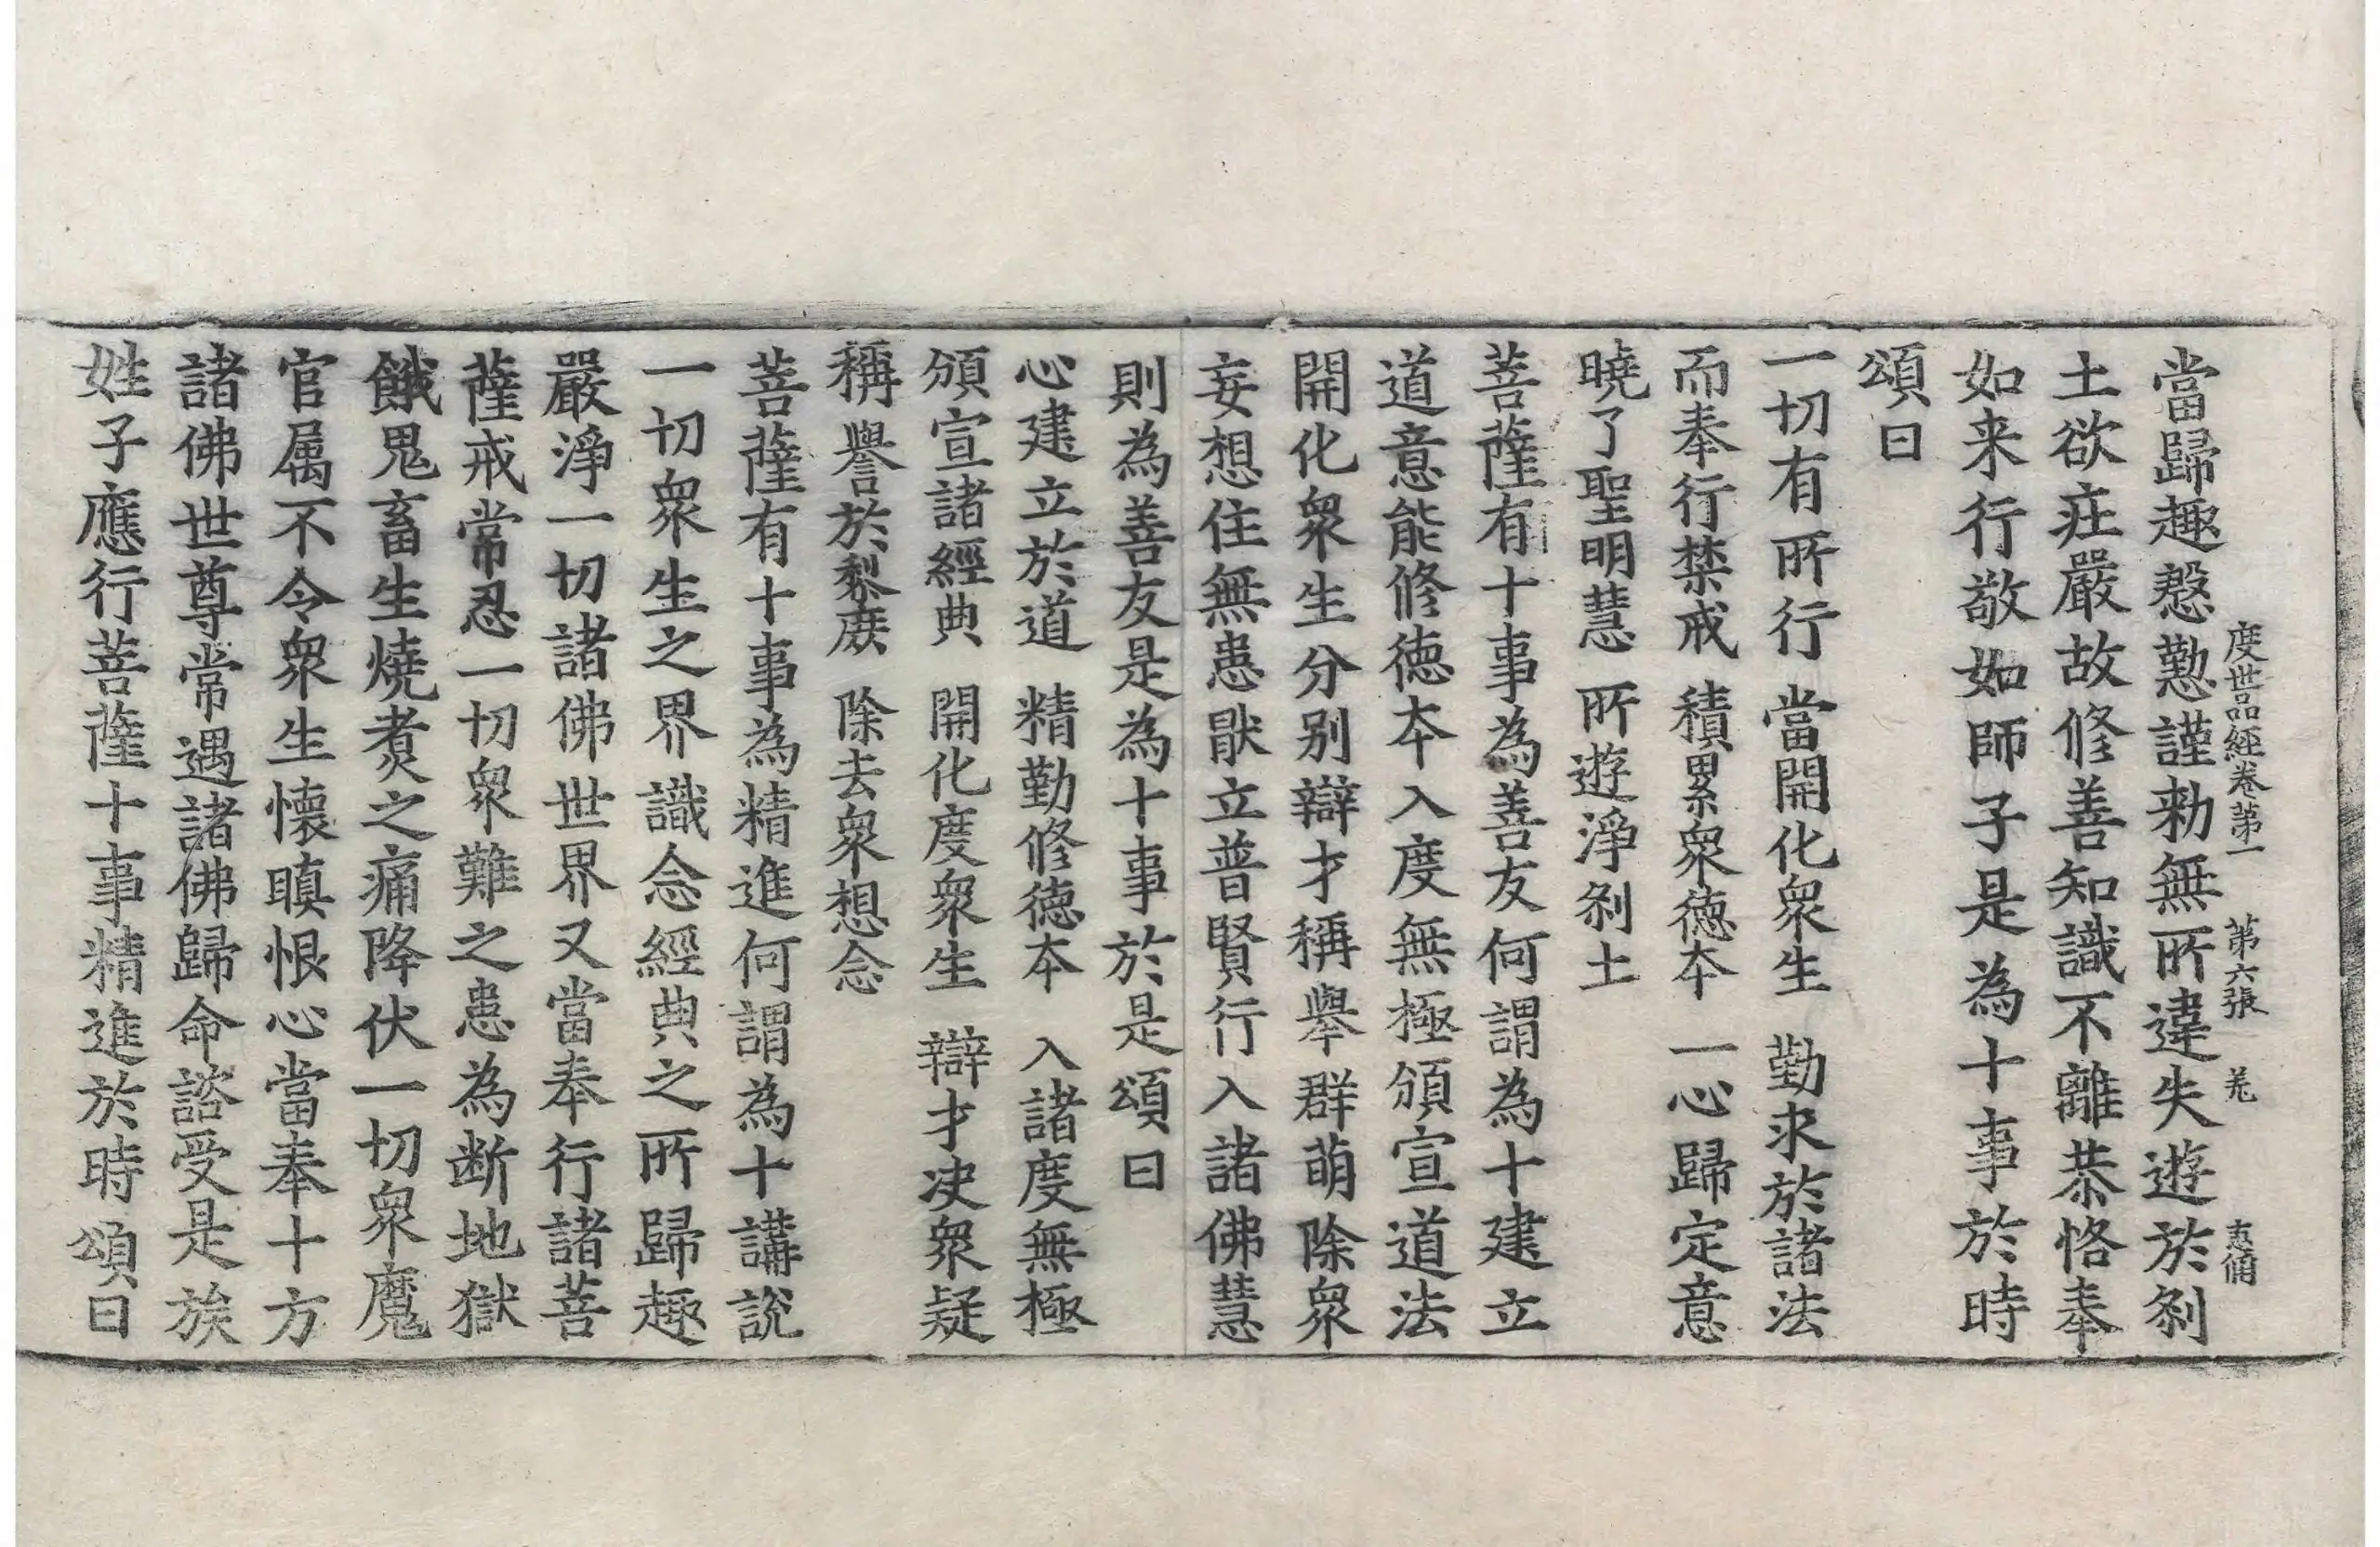 度世品經卷第一　第六張　羌　志俑
當歸趣慇懃謹勑無所違失遊於刹
土欲庄嚴故修善知識不離恭恪奉
如来行敬如師子是為十事於時
頌曰
一切有所行　當開化衆生　勤求於諸法
而奉行禁戒　積累衆德本　一心歸定意
曉了聖明慧　所遊淨刹土
菩薩有十事為善友何謂為十建立
道意能修德本入度無極頒宣道法
開化衆生分别辯才稱舉群萌除衆
妄想住無患猒立普賢行入諸佛慧
則為善友是為十事於是頌曰
心建立於道　精勤修德本　入諸度無極
頒宣諸經典　開化度衆生　辯才决衆疑
稱譽於黎庶　除去衆想念
菩薩有十事為精進何謂為十講説
一切衆生之界識念經典之所歸趣
嚴淨一切諸佛世界又當奉行諸菩
薩戒常忍一切衆難之患為断地獄
餓鬼畜生燒煑之痛降伏一切衆魔
官属不令衆生懷瞋恨心當奉十方
諸佛世尊常遇諸佛歸命諮受是族
姓子應行菩薩十事精進於時頌曰